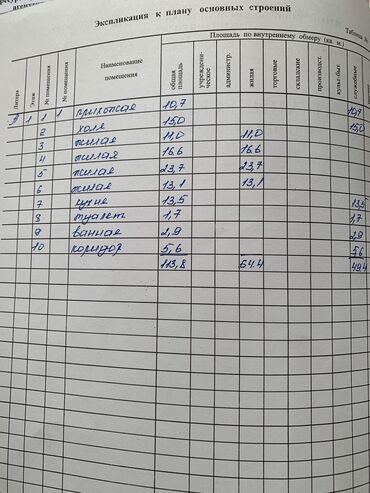 Экспликация к плану основных строений
Таблица №
Площадь по внутреннему обмеру (кв. м.)
Литера
Этаж
№ помещения
№ помещения
Наименование помещения
общая площадь
учрежденческое
администр.
жилая
торговые
складские
производст.
культ-быт.
служебное
1 1 1 прихожая 10,7 10,7
2 холл 15,0 15,0
3 жилая 11,0 11,0
4 жилая 16.6 16.6
5 жилая 23,7 23,7
6 жилая 13,1 13,1
7 кухне 13,5 13,5
8 туалет 1,7 1,7
9 ванная 2,9 2,9
10 коридор 5,6 5,6
113,8 64.4 49.4